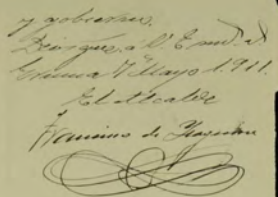 y gobierno.
Dios gue. a V. E. m. a.
7 Mayo 1.911.
El Alcalde
Francisco de